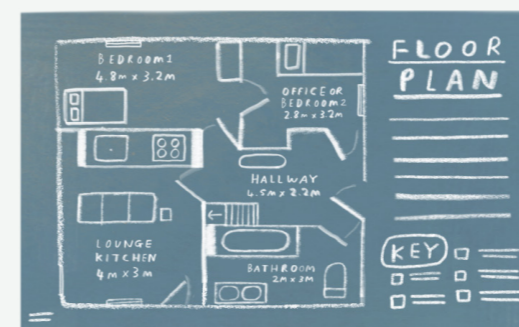 BEDROOM 1
4.8m x 3.2m
OFFICE OR
BEDROOM 2
2.8m x 3.2m
HALLWAY
4.5m x 2.2m
LOUNGE
KITCHEN
4m x 3m
BATHROOM
2m x 3m
FLOOR
PLAN
KEY